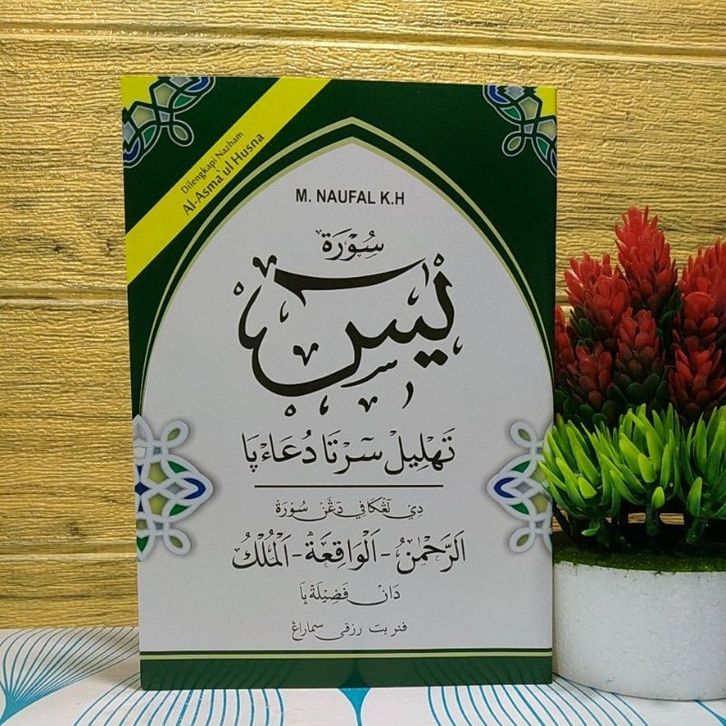 Dilengkapi Nazham
Al-Asma`ul Husna
M. NAUFAL K.H
سُوْرَة
يٰسٓ
تَهْلِيْل سَرْتَا دُعَاء ڽَا
دِي لَڠْكَافِي دَڠَنْ سُوْرَة
الرَّحْمٰنُ - الْوَاقِعَةُ - الْمُلْكُ
دَانْ فَضِيْلَة ڽَا
فنربت رزقي سماراڠ